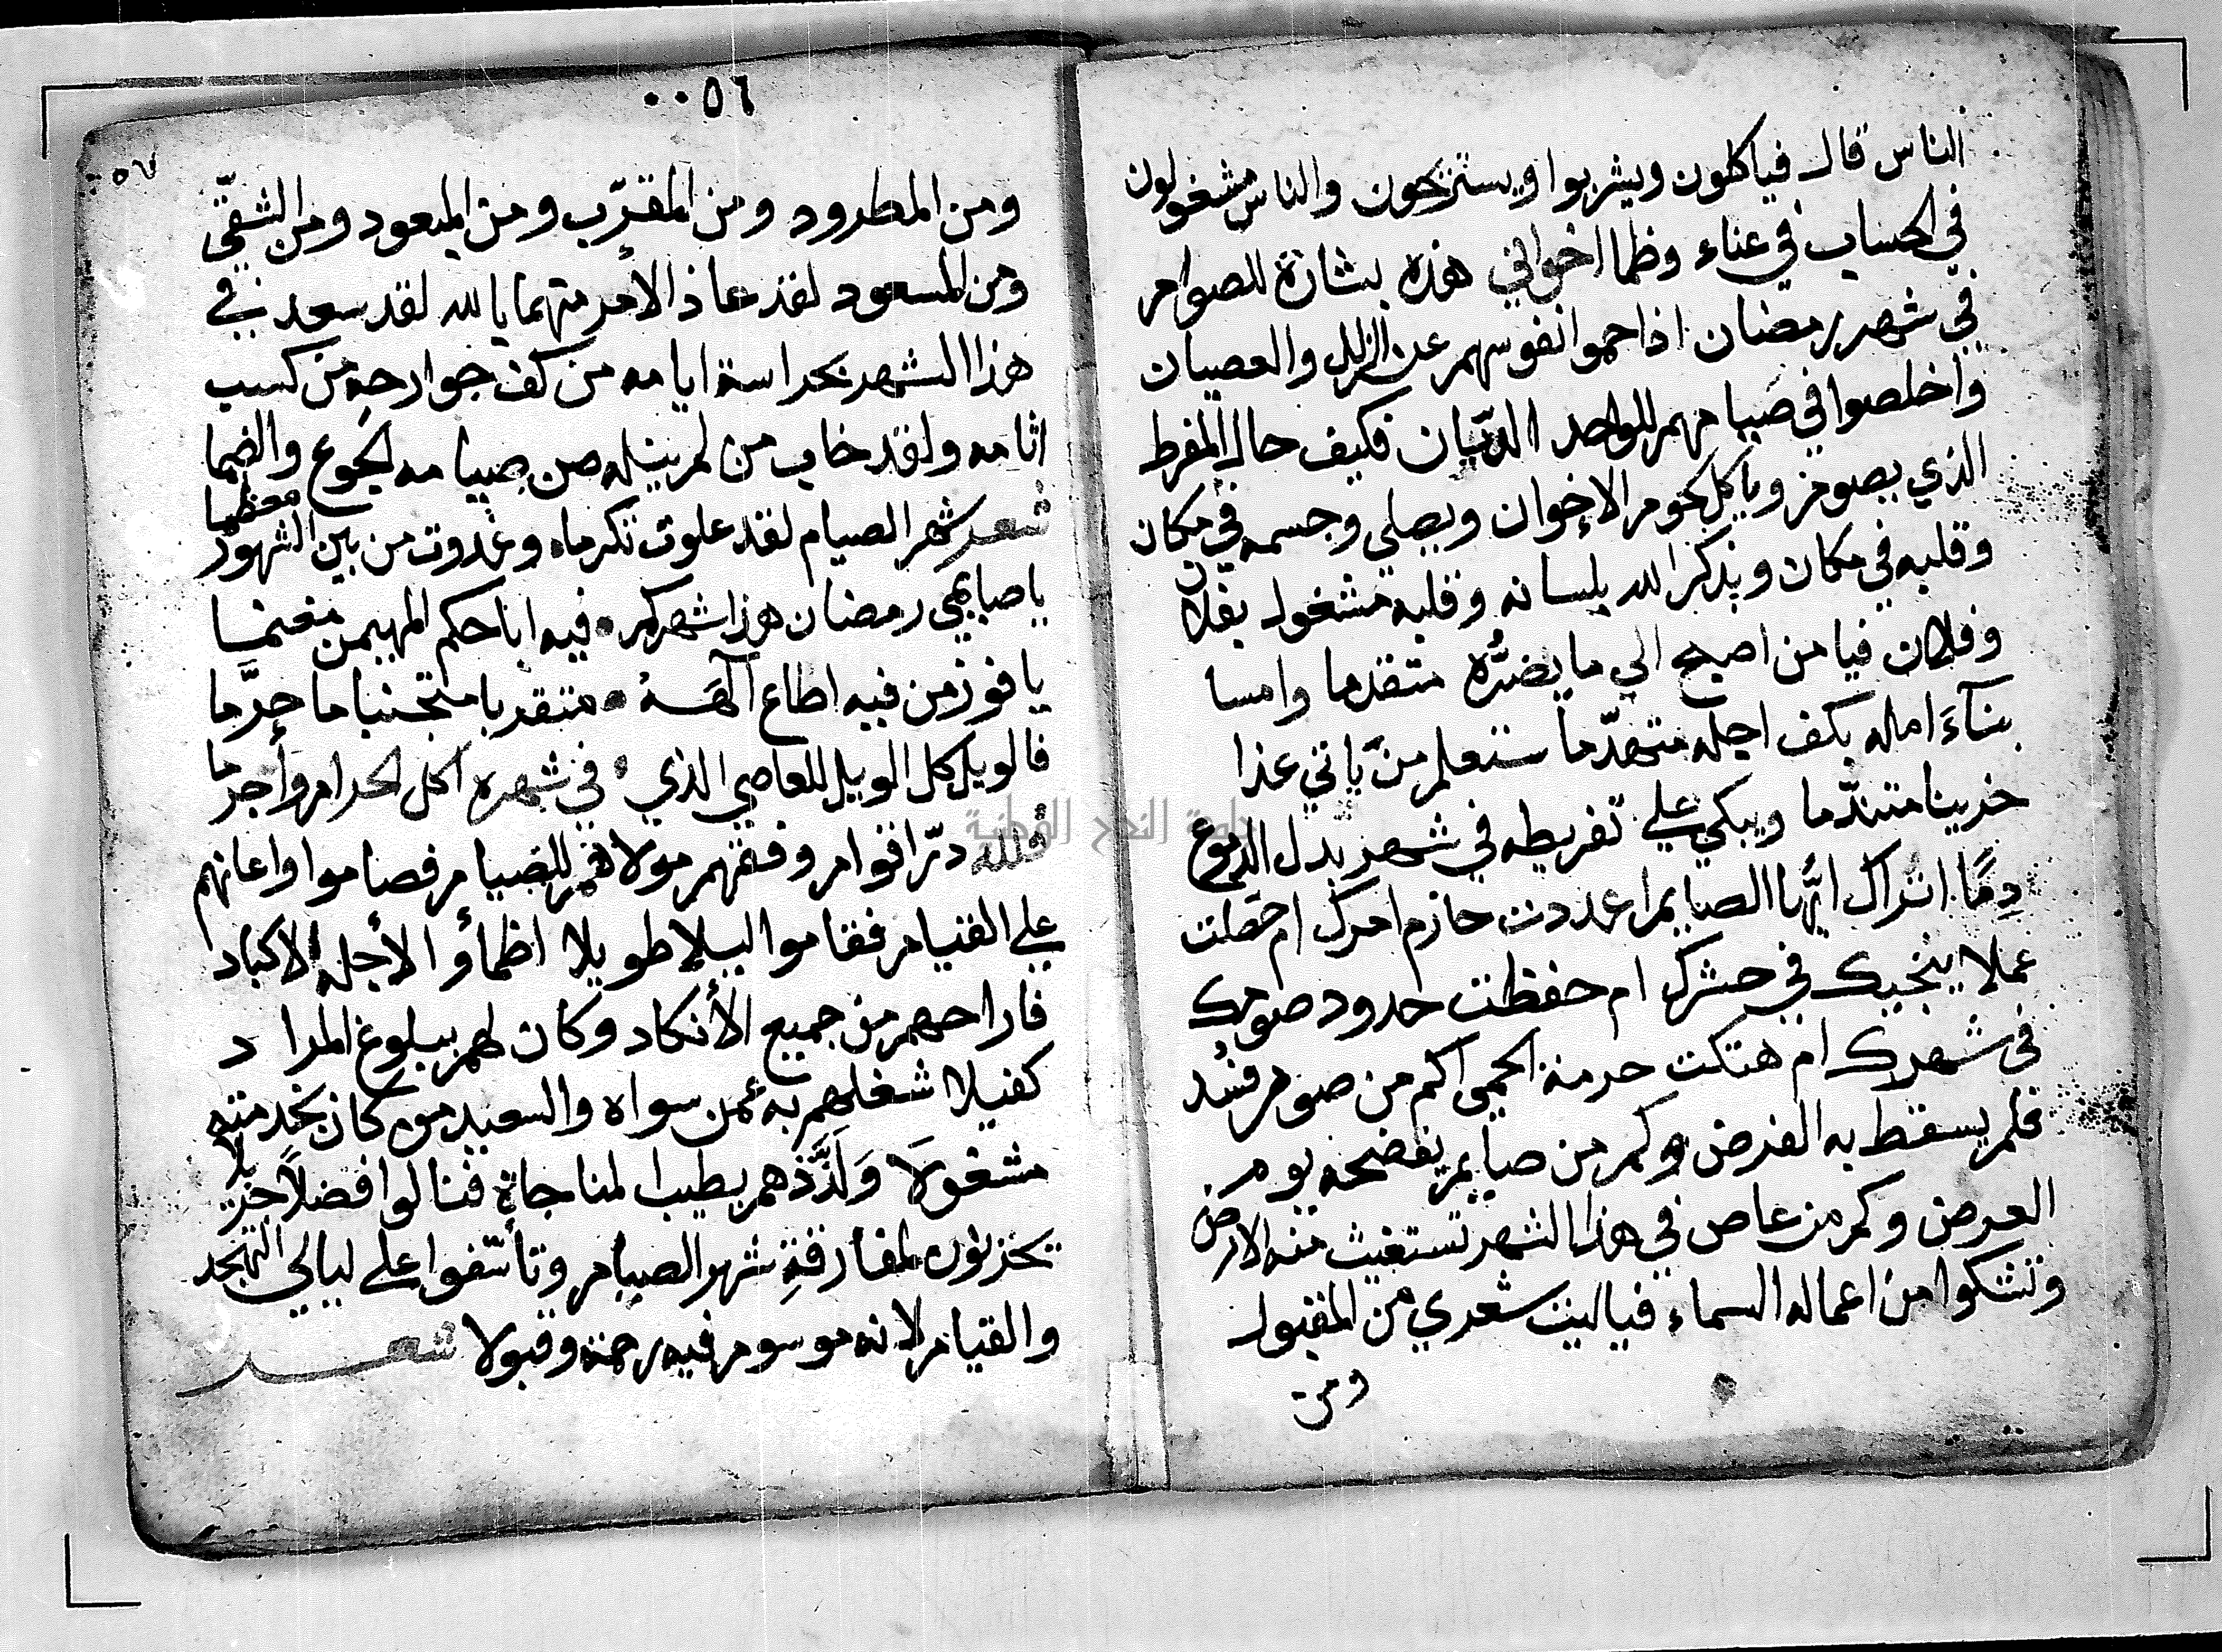 الناس قال فياكلون ويشربوا ويستريحون والناس مشغولون
في الحساب في عناء وظما اخواني هذه بشارة للصوام
في شهر رمضان اذا حموا انفوسهم عن الزلل والعصيان
واخلصوا في صيامهم للواحد الديّان فكيف حال المفرط
الذي يصوم وياكل لحوم الاخوان ويصلي وجسمه في مكان
وقلبه في مكان ويذكر الله بلسانه وقلبه مشغول بفلان
وفلان فيا من اصبح الي ما يضرُّه متقدما وامسا
بنآءَ اماله بكف اجله متهدّما ستعلم من ياتي غذا
خزينا متندّما ويبكي علي تفريطه في شهر بدل الدموع
دِمًا اتراك ايُّها الصايم اعددت حازم امرك ام حصلت
عملا ينجيك في حشرك ام حفظت حدود صومك
في شهرك ام هتكت حرمة الحمي اكم من صوم فسُد
فلم يسقط به الفرض وكم من صايم يفضحه يوم
العرض وكم من عاص في هذا الشهر تستغيث منه الارض
وتشكوا من اعماله السماء فياليت شعري من المقبول
ومن
٠٠٥٦
٥٧
ومن المطرود ومن المقرّب ومن المبعود ومن الشقيّ
ومن المسعود لقد عاذ الأمر متهما يا لله لقد سعد في
هذا الشهر بحراسة ايامه من كف جوارحه من كسب
اثامه ولقد خاب من لم ينله من صيامه الجوع والضما
شعر شهر الصيام لقد علوت تكرما وغدوت من بين الشهور معظما
يا صايمي رمضان هذا شهركم فيه اباحكم المهيمن مغنما
يا فوز من فيه اطاع آلهَهُ متقربا متجنبا ما حرَّما
فالويل كل الويل للعاصي الذي في شهره اكل الحرام وأجرما
فلله درّ اقوام وفقهم مولاهم للصيام فصاموا واعانهم
علي القيام فقاموا ليلا طويلا اظمأو الأجله الاكباد
فاراحهم من جميع الأنكاد وكان لهم ببلوغ المراد
كفيلا شغلهم به عمن سواه والسعيد من كان بخدمته
مشغولَا وَلَذَّذهم بطيب المناجاة فنالوا فضلاً جزيلا
يحزنون لمفارقةِ شهر الصيام وتأسّفوا علي ليالي التهجد
والقيام لانه موسوم فيه رحمة وقبولا شعر